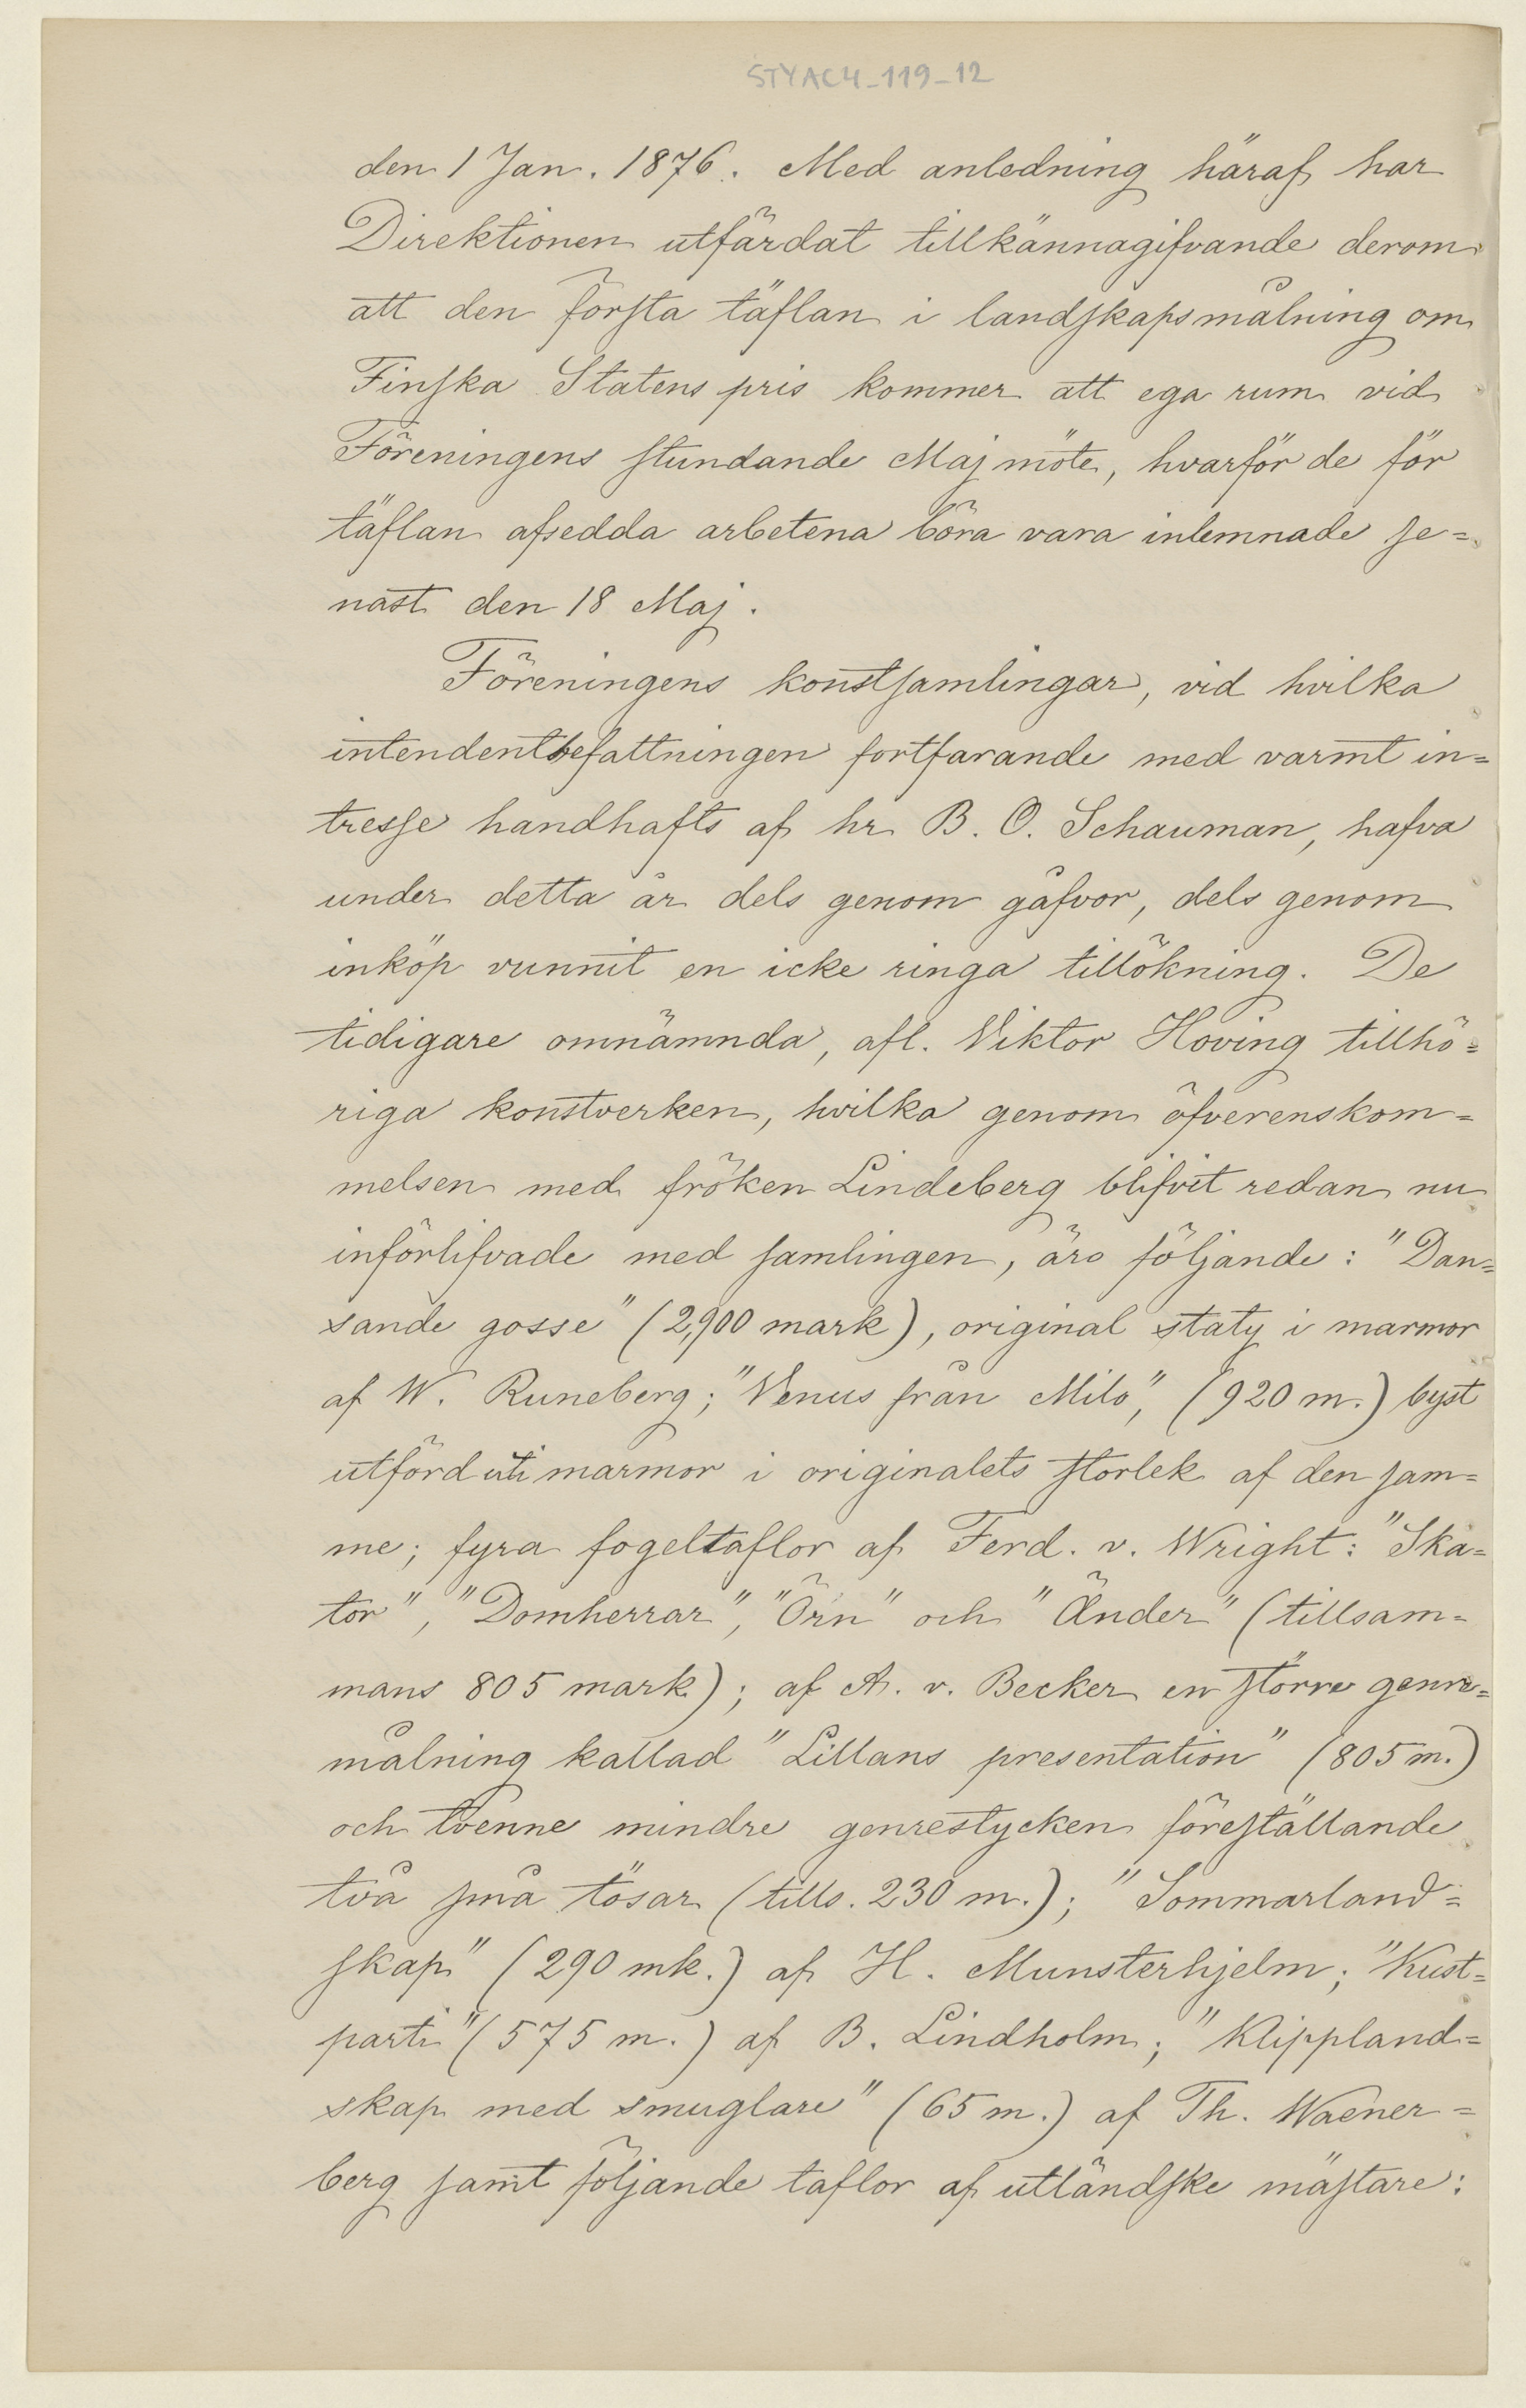 STYAC4_119_12
den 1 Jan. 1876. Med anledning häraf har
Direktionen utfärdat tillkännagifvande derom
att den första täflan i landskapsmålning om
Finska Statens pris kommer att ega rum vid
Föreningens stundande Majmöte, hvarför de för
täflan afsedda arbetena böra vara inlemnade se=
nast den 18 Maj.
Föreningens konstsamlingar, vid hvilka
intendentbefattningen fortfarande med varmt in=
tresse handhafts af hr B. O. Schauman, hafva
under detta år dels genom gåfvor, dels genom
inköp vunnit en icke ringa tillökning. De
tidigare omnämnda, afl. Viktor Hoving tillhö=
riga konstverken, hvilka genom öfverenskom=
melsen med fröken Lindeberg blifvit redan nu
införlifvade med samlingen, äro följande: "Dan=
sande gosse" (2,900 mark), original staty i marmor
af W. Runeberg; "Venus från Milo", (920 m.) byst
utförd uti marmor i originalets storlek af den sam=
me; fyra fogeltaflor af Ferd. v. Wright: "Ska=
tor", "Domherrar", "Örn" och "Änder" (tillsam=
mans 805 mark); af A. v. Becker en större genre=
målning kallad "Lillans presentation" (805 m.)
och tvenne mindre genrestycken föreställande
två små tösar (tills. 230 m.); "Sommarland=
skap" (290 mk.) af H. Munsterhjelm; "Kust=
parti" (575 m.) af B. Lindholm; "Klippland=
skap med smuglare" (65 m.) af Th. Waener=
berg samt följande taflor af utländske mästare: